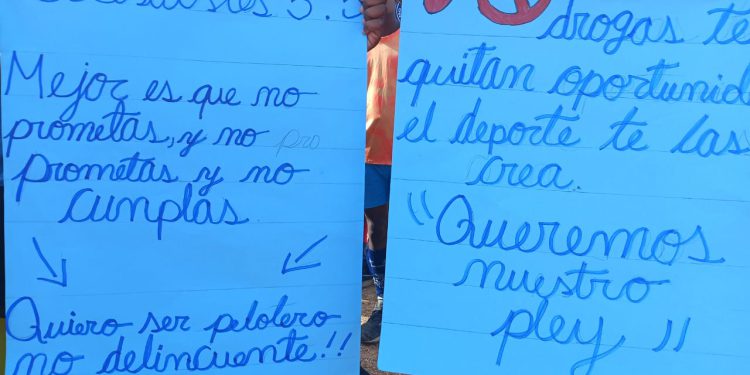 5:5
Mejor es que no
prometas, y no pro
prometas y no
cunplas.
Quiero ser pelotero
no delincuente!!
drogas te
quitan oportunid
el deporte te las
crea.
"Queremos
nuestro
pley"